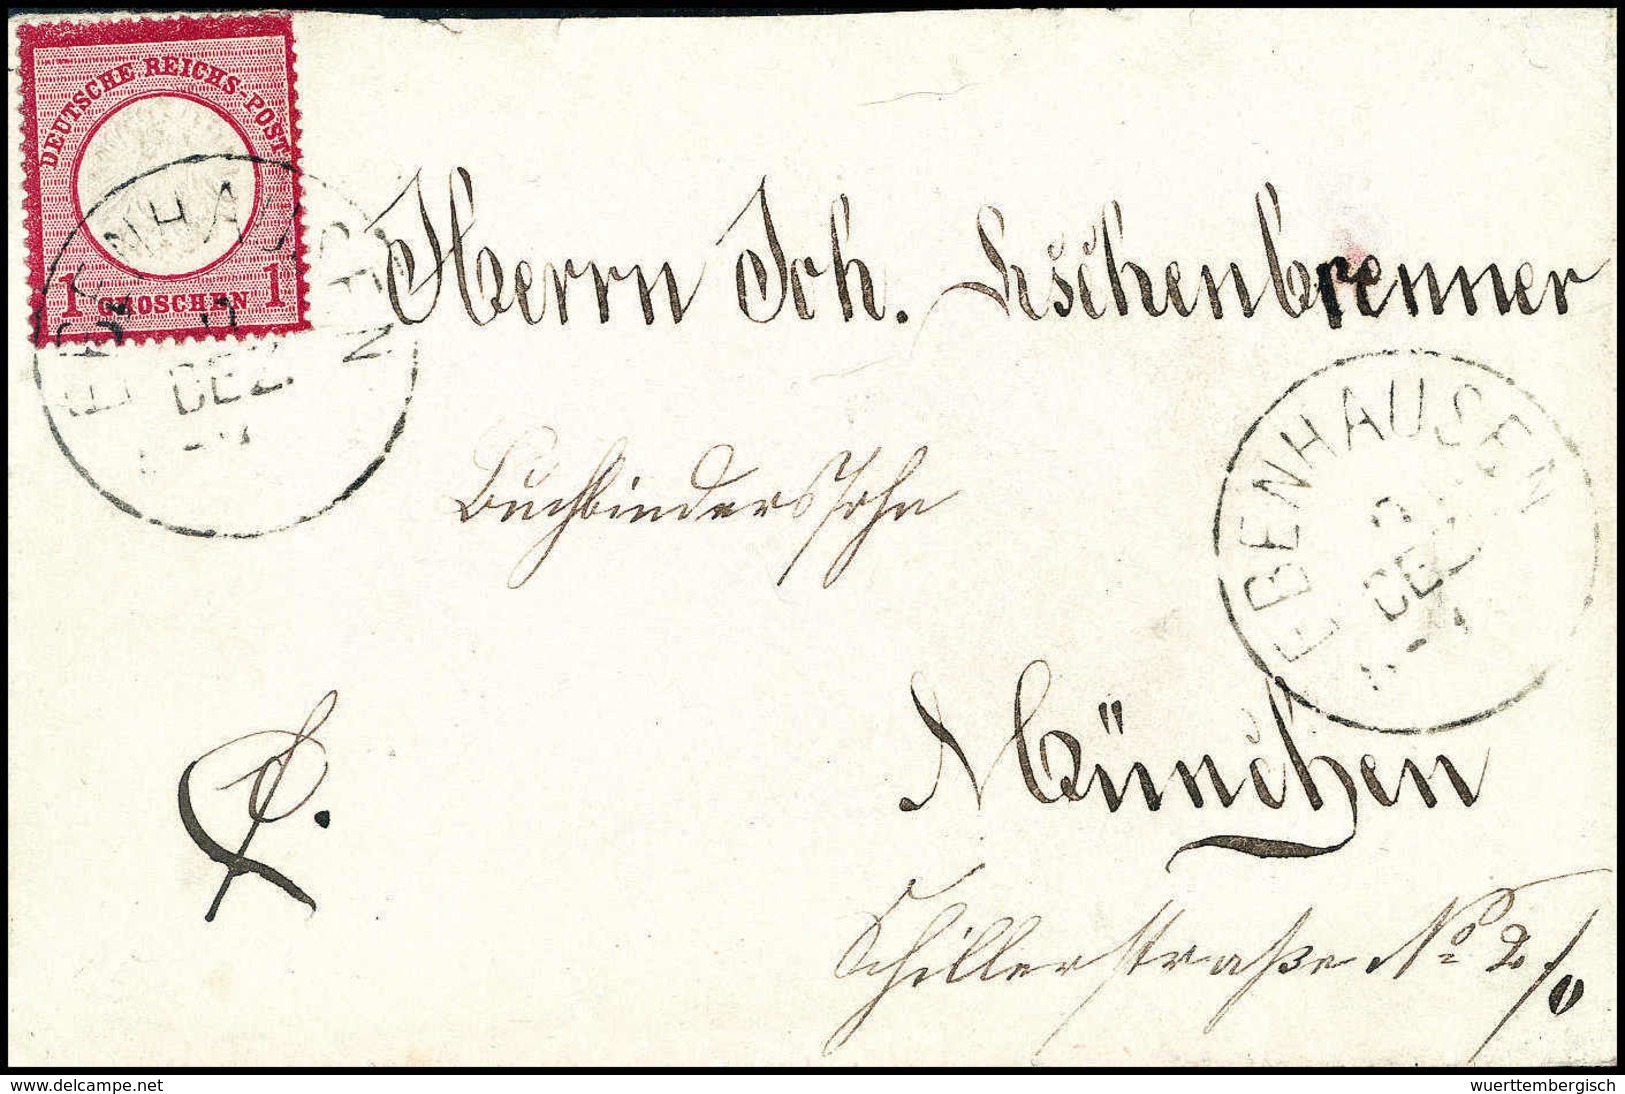 DEUTSCHE REICHS-POST
1 GROSCHEN 1
EBENHAUSEN
DEZ.
Herrn Joh. Eschenbrenner
Buchbinderssohn
EBENHAUSEN
DEZ
München
Schillerstraße No 2/0
www.delcampe.net
wuerttembergisch